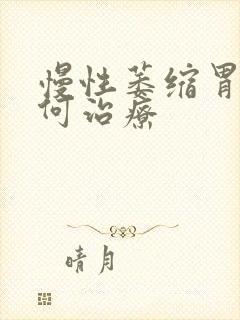 慢性萎缩胃
何治疗
晴月